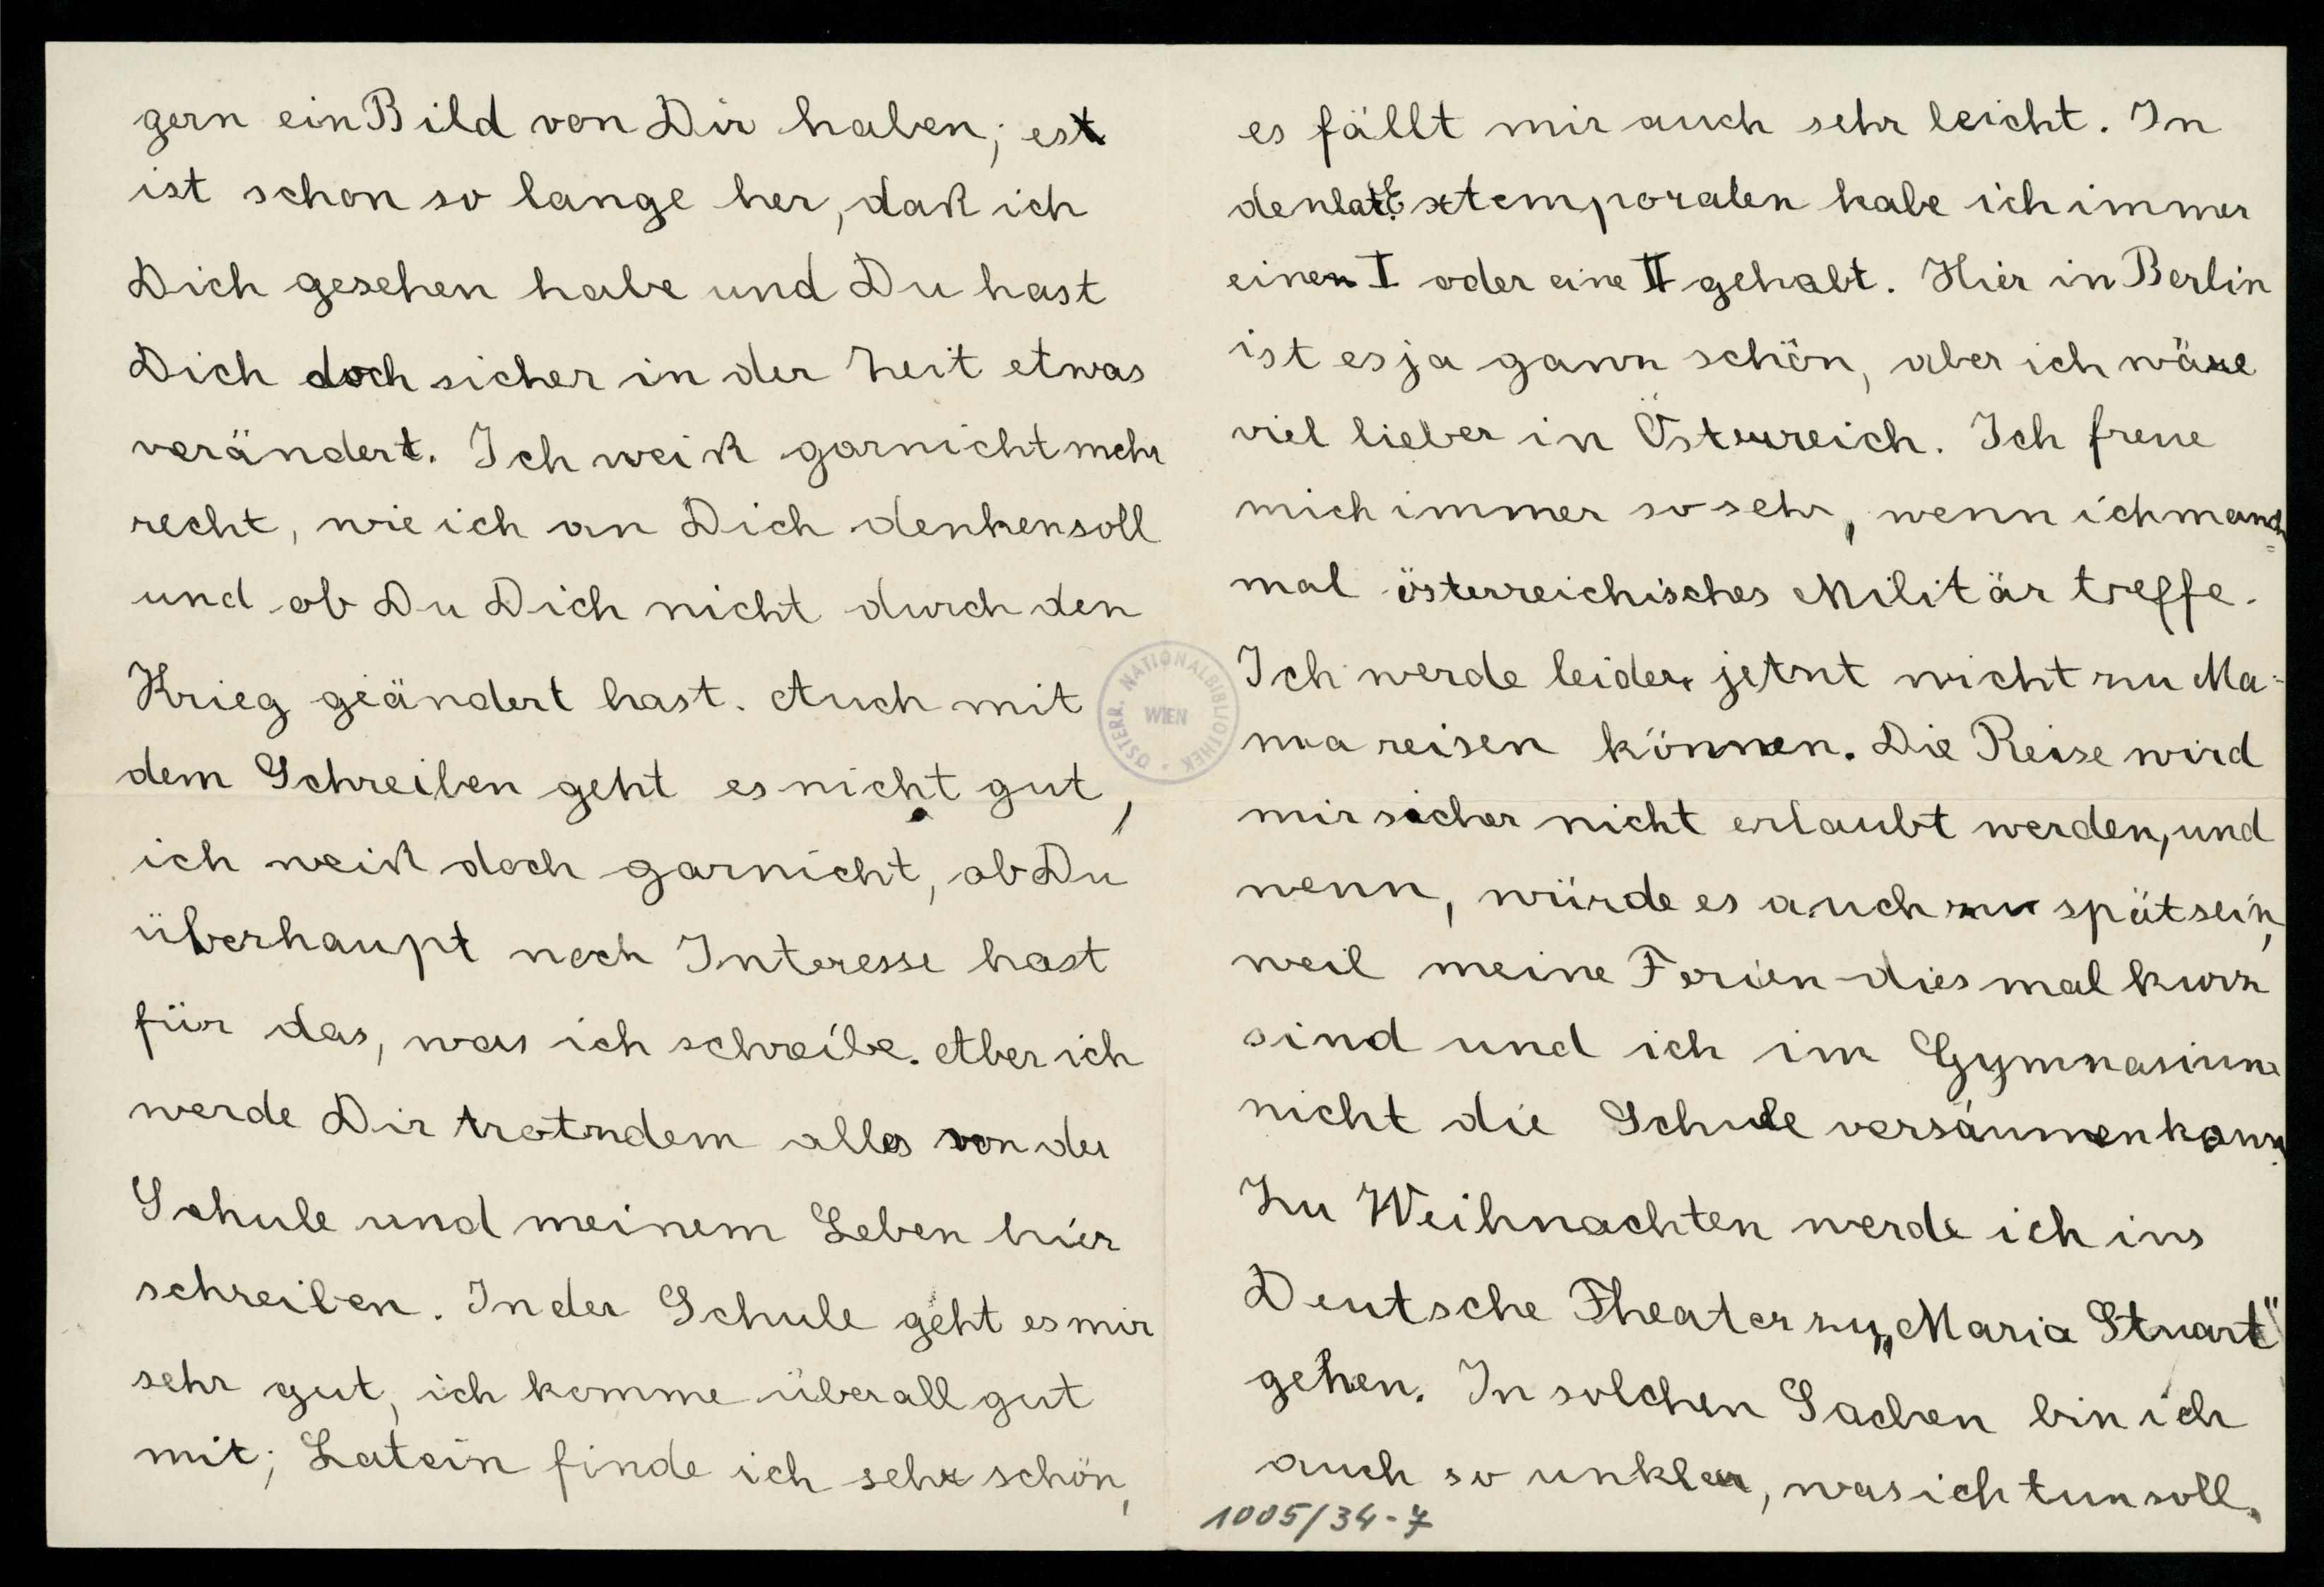 gern ein Bild von Dir haben; es
ist schon so lange her, daß ich
Dich gesehen habe und Du hast
Dich doch sicher in der Zeit etwas
verändert. Ich weiß garnicht mehr
recht, wie ich an Dich denken soll
und ob Du Dich nicht durch den
Krieg geändert hast. Auch mit
dem Schreiben geht es nicht gut,
ich weiß doch garnicht, ob Du
überhaupt noch Interesse hast
für das, was ich schreibe. Aber ich
werde Dir trotzdem alles von der
Schule und meinem Leben hier
schreiben. In der Schule geht es mir
sehr gut, ich komme überall gut
mit; Latein finde ich sehr schön,
es fällt mir auch sehr leicht. In
den lat. Extemporalen habe ich immer
einen I oder eine II gehabt. Hier in Berlin
ist es ja ganz schön, aber ich wäre
viel lieber in Österreich. Ich freue
mich immer so sehr, wenn ich manch=
mal österreichisches Militär treffe.
Ich werde leider jetzt nicht zu Ma-
ma reisen können. Die Reise wird
mir sicher nicht erlaubt werden, und
wenn, würde es auch zu spät sein,
weil meine Ferien diesmal kurz
sind und ich im Gymnasium
nicht die Schule versäumen kann.
Zu Weihnachten werde ich ins
Deutsche Theater zu „Maria Stuart"
gehen. In solchen Sachen bin ich
auch so unklar, was ich tun soll,
1005/34-7
ÖSTERR. NATIONALBIBLIOTHEK
WIEN